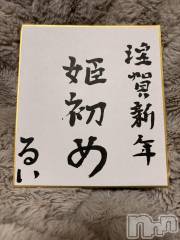 謹賀新年
姫初め
るい